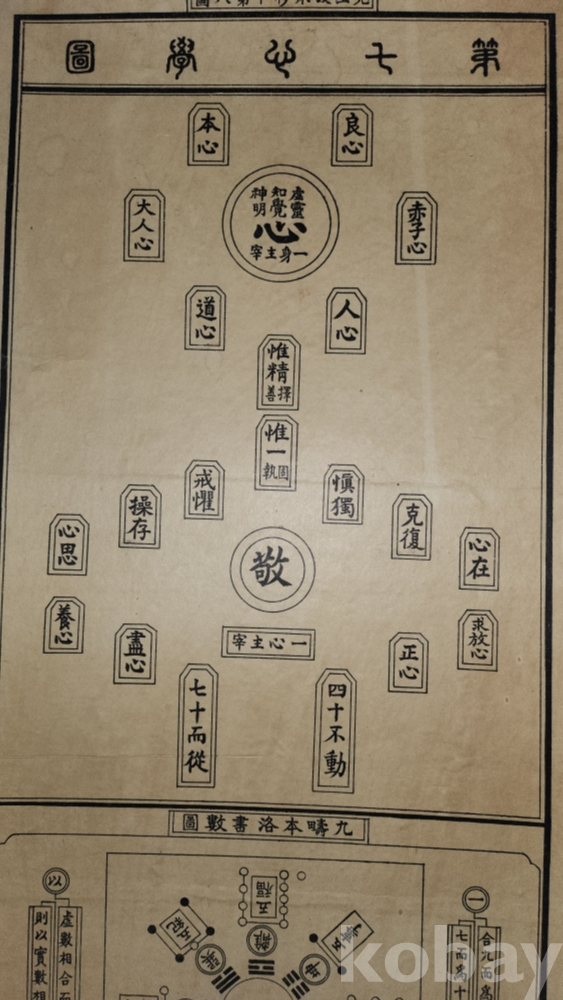 第七心學圖
良心
本心
虛靈
知覺
神明
心
一身主宰
赤子心
大人心
人心
道心
惟精
擇善
惟一
固執
慎獨
戒懼
克復
操存
心在
心思
敬
求放心
養心
正心
盡心
一心主宰
四十不動
七十而從
九疇本洛書數圖
五福
一
以
虛數相合
則以實數相
kobay